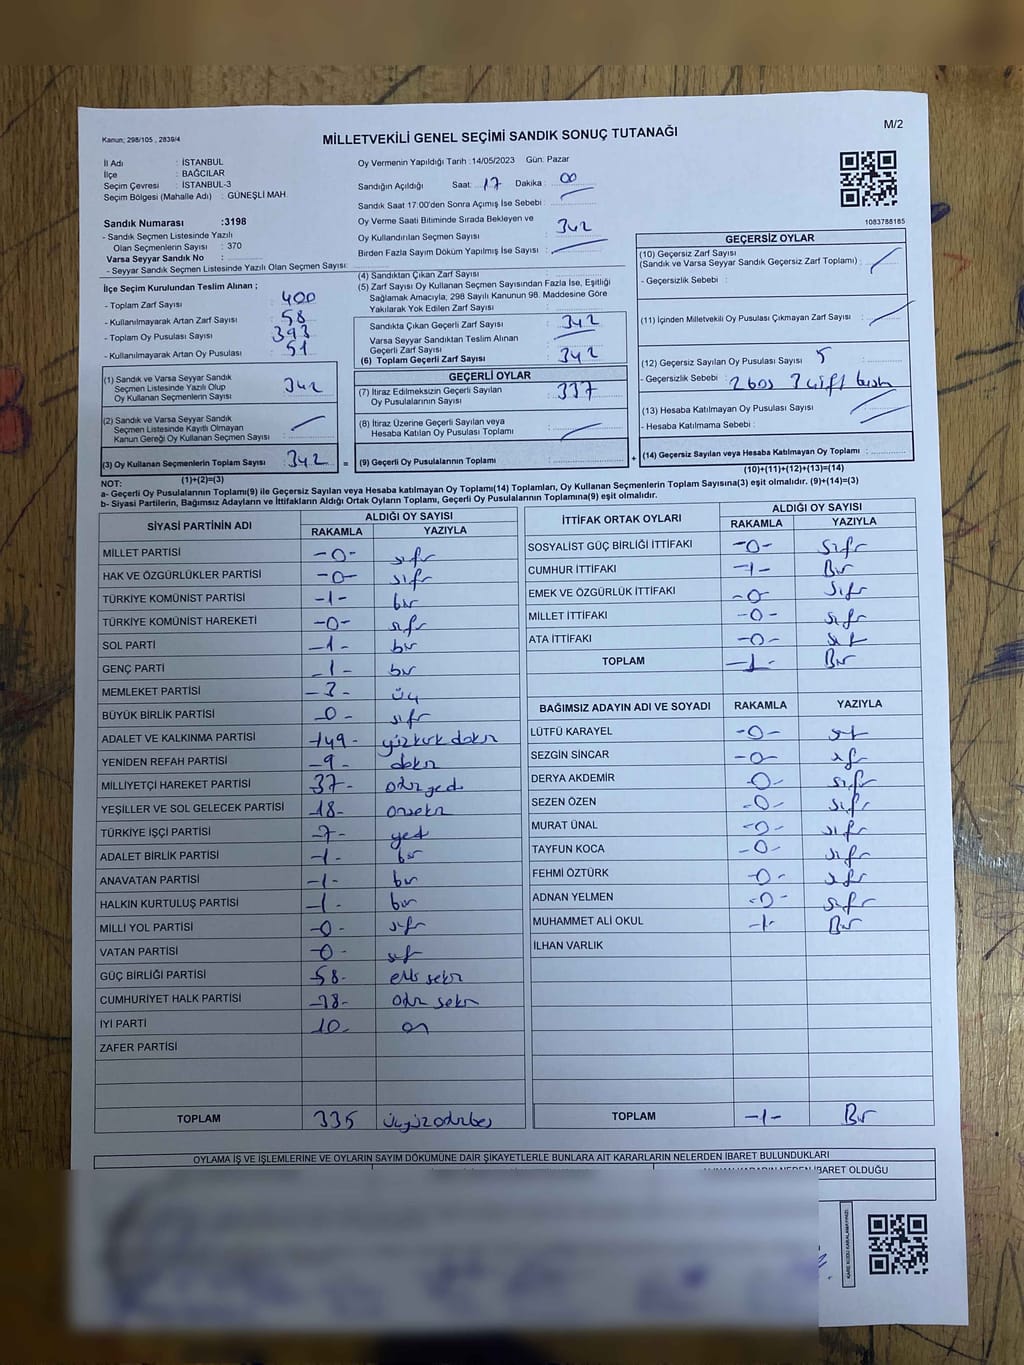 M/2
Kanun; 298/105 , 2839/4
MİLLETVEKİLİ GENEL SEÇİMİ SANDIK SONUÇ TUTANAĞI
İl Adı : İSTANBUL
İlçe : BAĞCILAR
Seçim Çevresi : İSTANBUL-3
Seçim Bölgesi (Mahalle Adı) : GÜNEŞLİ MAH.
Sandık Numarası :3198
- Sandık Seçmen Listesinde Yazılı
Olan Seçmenlerin Sayısı : 370
Varsa Seyyar Sandık No :
- Seyyar Sandık Seçmen Listesinde Yazılı Olan Seçmen Sayısı:
İlçe Seçim Kurulundan Teslim Alınan ;
- Toplam Zarf Sayısı : 400
- Kullanılmayarak Artan Zarf Sayısı : 58
- Toplam Oy Pusulası Sayısı : 393
- Kullanılmayarak Artan Oy Pusulası : 51
(1) Sandık ve Varsa Seyyar Sandık
Seçmen Listesinde Yazılı Olup
Oy Kullanan Seçmenlerin Sayısı : 342
(2) Sandık ve Varsa Seyyar Sandık
Seçmen Listesinde Kayıtlı Olmayan
Kanun Gereği Oy Kullanan Seçmen Sayısı :
(3) Oy Kullanan Seçmenlerin Toplam Sayısı : 342
(1)+(2)=(3)
Oy Vermenin Yapıldığı Tarih :14/05/2023 Gün: Pazar
Sandığın Açıldığı Saat: 17 Dakika : 00
Sandık Saat 17:00'den Sonra Açımış İse Sebebi :
Oy Verme Saati Bitiminde Sırada Bekleyen ve
Oy Kullandırılan Seçmen Sayısı : 342
Birden Fazla Sayım Döküm Yapılmış İse Sayısı :
(4) Sandıktan Çıkan Zarf Sayısı :
(5) Zarf Sayısı Oy Kullanan Seçmen Sayısından Fazla İse, Eşitliği
Sağlamak Amacıyla, 298 Sayılı Kanunun 98. Maddesine Göre
Yakılarak Yok Edilen Zarf Sayısı :
Sandıkta Çıkan Geçerli Zarf Sayısı : 342
Varsa Seyyar Sandıktan Teslim Alınan
Geçerli Zarf Sayısı :
(6) Toplam Geçerli Zarf Sayısı : 342
GEÇERLİ OYLAR
(7) İtiraz Edilmeksizin Geçerli Sayılan
Oy Pusulalarının Sayısı : 337
(8) İtiraz Üzerine Geçerli Sayılan veya
Hesaba Katılan Oy Pusulası Toplamı :
= (9) Geçerli Oy Pusulalarının Toplamı :
1083788185
GEÇERSİZ OYLAR
(10) Geçersiz Zarf Sayısı
(Sandık ve Varsa Seyyar Sandık Geçersiz Zarf Toplamı) :
- Geçersizlik Sebebi :
(11) İçinden Milletvekili Oy Pusulası Çıkmayan Zarf Sayısı :
(12) Geçersiz Sayılan Oy Pusulası Sayısı : 5
- Geçersizlik Sebebi : 2 boş 3 çift baskı
(13) Hesaba Katılmayan Oy Pusulası Sayısı :
- Hesaba Katılmama Sebebi :
+ (14) Geçersiz Sayılan veya Hesaba Katılmayan Oy Toplamı :
(10)+(11)+(12)+(13)=(14)
NOT:
a- Geçerli Oy Pusulalarının Toplamı(9) ile Geçersiz Sayılan veya Hesaba Katılmayan Oy Toplamı(14) Toplamları, Oy Kullanan Seçmenlerin Toplam Sayısına(3) eşit olmalıdır. (9)+(14)=(3)
b- Siyasi Partilerin, Bağımsız Adayların ve İttifakların Aldığı Ortak Oyların Toplamı, Geçerli Oy Pusulalarının Toplamına(9) eşit olmalıdır.
SİYASİ PARTİNİN ADI ALDIĞI OY SAYISI
RAKAMLA YAZIYLA
MİLLET PARTİSİ -0- sıfır
HAK VE ÖZGÜRLÜKLER PARTİSİ -0- sıfır
TÜRKİYE KOMÜNİST PARTİSİ -1- bir
TÜRKİYE KOMÜNİST HAREKETİ -0- sıfır
SOL PARTİ -1- bir
GENÇ PARTİ -1- bir
MEMLEKET PARTİSİ -3- üç
BÜYÜK BİRLİK PARTİSİ -0- sıfır
ADALET VE KALKINMA PARTİSİ -149- yüzkırk dokuz
YENİDEN REFAH PARTİSİ -9- dokuz
MİLLİYETÇİ HAREKET PARTİSİ 37- otuzyedi
YEŞİLLER VE SOL GELECEK PARTİSİ -18- onsekiz
TÜRKİYE İŞÇİ PARTİSİ -7- yedi
ADALET BİRLİK PARTİSİ -1- bir
ANAVATAN PARTİSİ -1- bir
HALKIN KURTULUŞ PARTİSİ -1- bir
MİLLİ YOL PARTİSİ -0- sıfır
VATAN PARTİSİ -0- sıfır
GÜÇ BİRLİĞİ PARTİSİ -58- elli sekiz
CUMHURİYET HALK PARTİSİ -38- otuz sekiz
İYİ PARTİ 10- on
ZAFER PARTİSİ
TOPLAM 335 üçyüzotuzbeş
İTTİFAK ORTAK OYLARI ALDIĞI OY SAYISI
RAKAMLA YAZIYLA
SOSYALİST GÜÇ BİRLİĞİ İTTİFAKI -0- sıfır
CUMHUR İTTİFAKI -1- Bir
EMEK VE ÖZGÜRLÜK İTTİFAKI -0- sıfır
MİLLET İTTİFAKI -0- sıfır
ATA İTTİFAKI -0- sıfır
TOPLAM -1- Bir
BAĞIMSIZ ADAYIN ADI VE SOYADI RAKAMLA YAZIYLA
LÜTFÜ KARAYEL -0- sıfır
SEZGİN SİNCAR -0- sıfır
DERYA AKDEMİR -0- sıfır
SEZEN ÖZEN -0- sıfır
MURAT ÜNAL -0- sıfır
TAYFUN KOCA -0- sıfır
FEHMİ ÖZTÜRK -0- sıfır
ADNAN YELMEN -0- sıfır
MUHAMMET ALİ OKUL -1- Bir
İLHAN VARLIK
TOPLAM -1- Bir
OYLAMA İŞ VE İŞLEMLERİNE VE OYLARIN SAYIM DÖKÜMÜNE DAİR ŞİKAYETLERLE BUNLARA AİT KARARLARIN NELERDEN İBARET BULUNDUKLARI
İBARET OLDUĞU